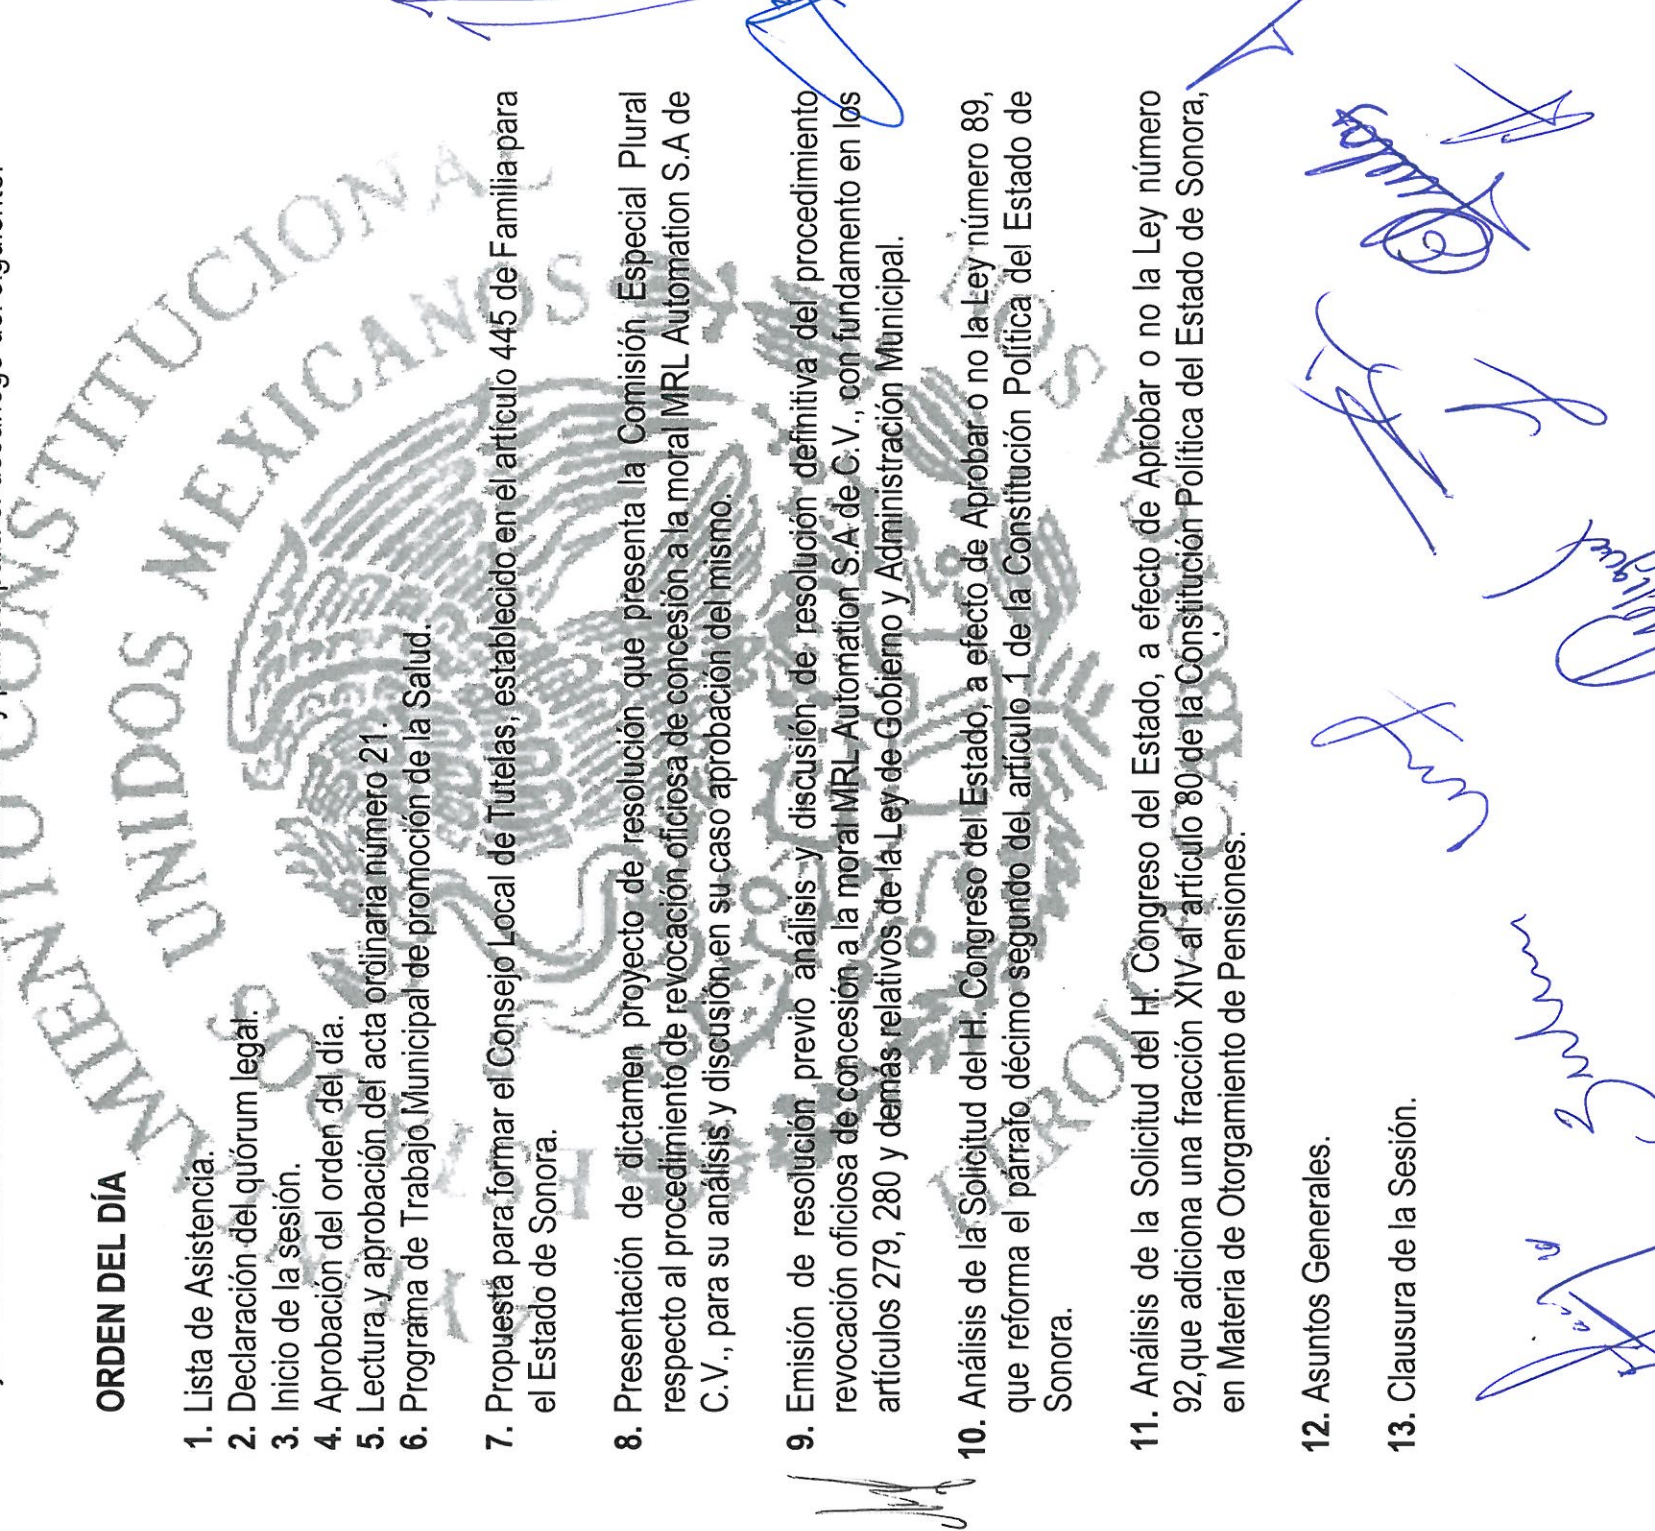 ORDEN DEL DÍA
1. Lista de Asistencia.
2. Declaración del quórum legal.
3. Inicio de la sesión.
4. Aprobación del orden del día.
5. Lectura y aprobación del acta ordinaria número 21.
6. Programa de Trabajo Municipal de promoción de la Salud.
7. Propuesta para formar el Consejo Local de Tutelas, establecido en el artículo 445 de Familia para
el Estado de Sonora.
8. Presentación de dictamen proyecto de resolución que presenta la Comisión Especial Plural
respecto al procedimiento de revocación oficiosa de concesión a la moral MRL Automation S.A de
C.V., para su análisis y discusión en su caso aprobación del mismo.
9. Emisión de resolución previo análisis y discusión de resolución definitiva del procedimiento
revocación oficiosa de concesión a la moral MRL Automation S.A de C.V., con fundamento en los
artículos 279, 280 y demás relativos de la Ley de Gobierno y Administración Municipal.
10. Análisis de la Solicitud del H. Congreso del Estado, a efecto de Aprobar o no la Ley número 89,
que reforma el párrafo décimo segundo del artículo 1 de la Constitución Política del Estado de
Sonora.
11. Análisis de la Solicitud del H. Congreso del Estado, a efecto de Aprobar o no la Ley número
92,que adiciona una fracción XIV al artículo 80 de la Constitución Política del Estado de Sonora,
en Materia de Otorgamiento de Pensiones.
12. Asuntos Generales.
13. Clausura de la Sesión.
CONSTITUCIONAL
UNIDOS MEXICANOS